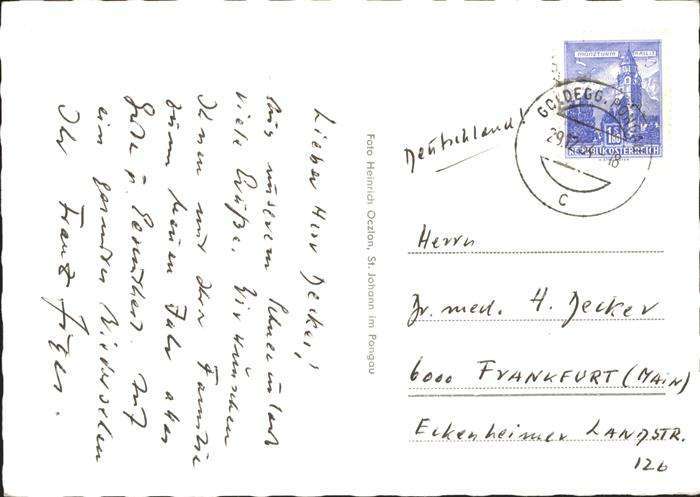 Lieber Herr Decker!
Aus unserem Schneeurlaub
viele Grüße. Wir wünschen
Ihnen und Ihrer Familie
zum neuen Jahr alles
Gute u. Gesundheit. Auf
ein gesundes Wiedersehen
Ihr Frantz
Foto Heinrich Oczlon, St. Johann im Pongau
Deutschland!
MÜNZTURM HALL I.
REPUBLIK ÖSTERREICH
GOLDEGG, PONGAU
29.12.
18
C
Herrn
Dr. med. H. Decker
6000 FRANKFURT (MAIN)
Eckenheimer LANDSTR.
126